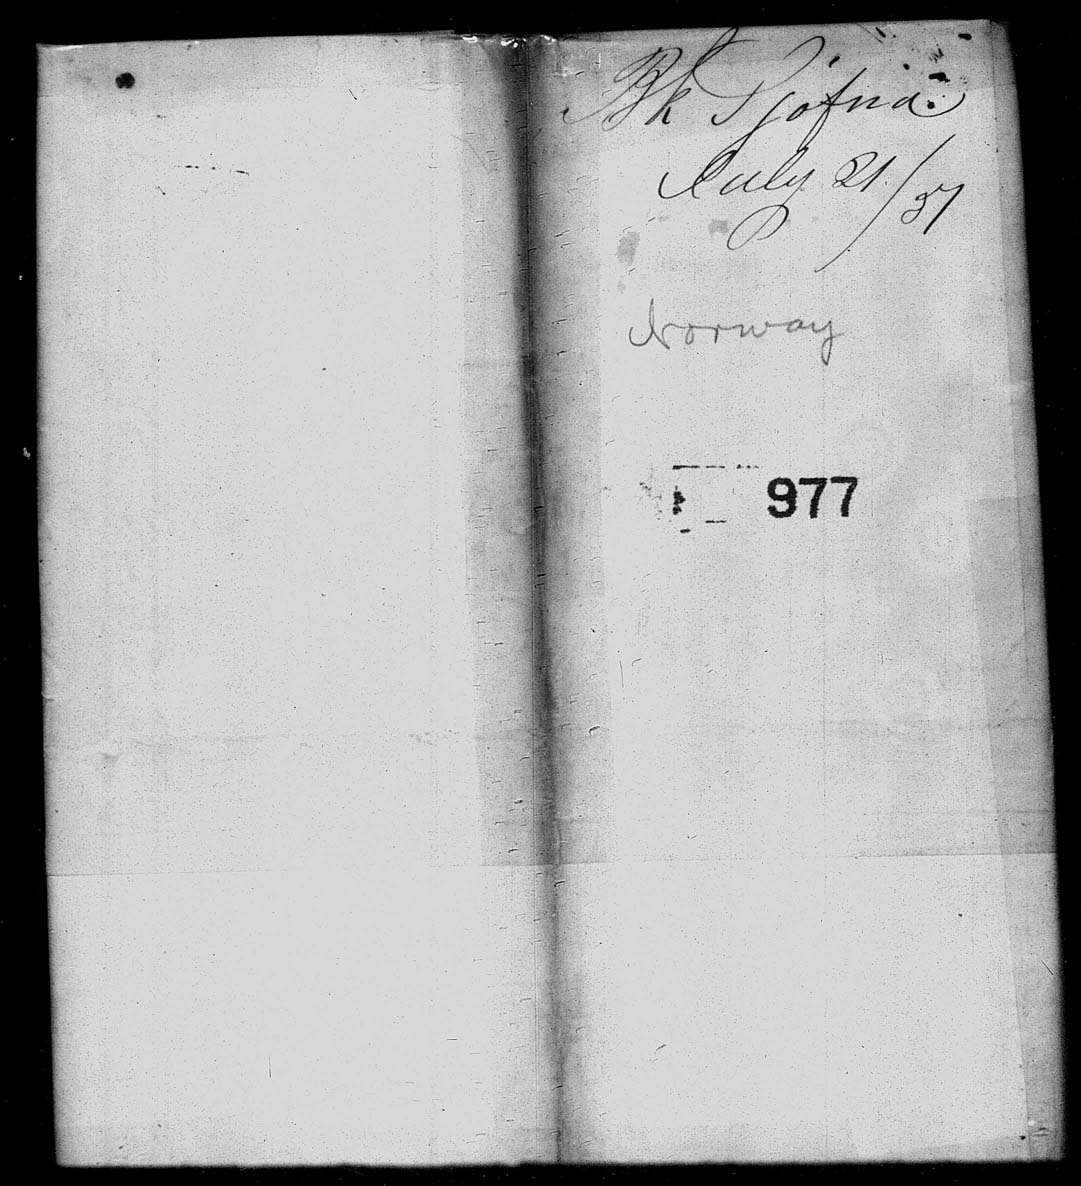 Bk Sjofna.
July 21/51
Norway
977